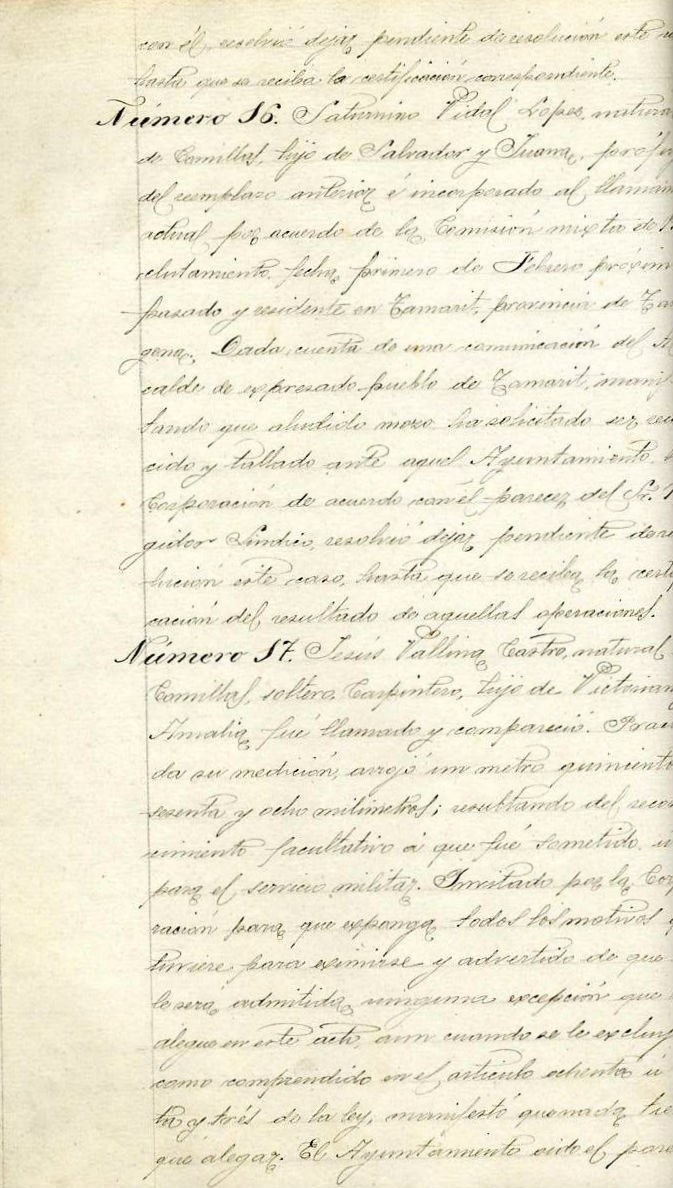 con él, resolvió dejar pendiente de resolución este
hasta que se reciba la certificación correspondiente.
Número 16. Saturnino Vidal Lopez, natura
de Comillas, hijo de Salvador y Juana, prófu
del reemplazo anterior é incorporado al llamam
actual, por acuerdo de la Comisión mixta de R
clutamiento, fecha primero de Febrero próxim
pasado y residente en Tamarit, provincia de Tar
gona. Dada cuenta de una comunicación del Al
calde de expresado pueblo de Tamarit, manif
tando que aludido mozo ha solicitado ser reco
cido y tallado ante aquel Ayuntamiento, l
Corporación de acuerdo con él parecer del Sr. R
gidor Síndico, resolvió dejar pendiente de re
lución este caso, hasta que se reciba la certi
cación del resultado de aquellas operaciones.
Número 17. Jesús Vallina Castro, natural
Comillas, soltero, Carpintero, hijo de Victorian
Amalia fué llamado y compareció. Prac
da su medición, arrojó un metro quinientos
sesenta y ocho milímetros; resultando del recon
cimiento facultativo á que fué sometido, ú
para el servicio militar. Invitado por la Cor
ración para que exponga todos los motivos q
tuviere para eximirse y advertido de que
le será admitida ninguna excepción que
alegue en este acto, aun cuando se le excluy
como comprendido en el artículo ochenta ú
ta y trés de la ley, manifestó que nada tie
que alegar. El Ayuntamiento oido el pare